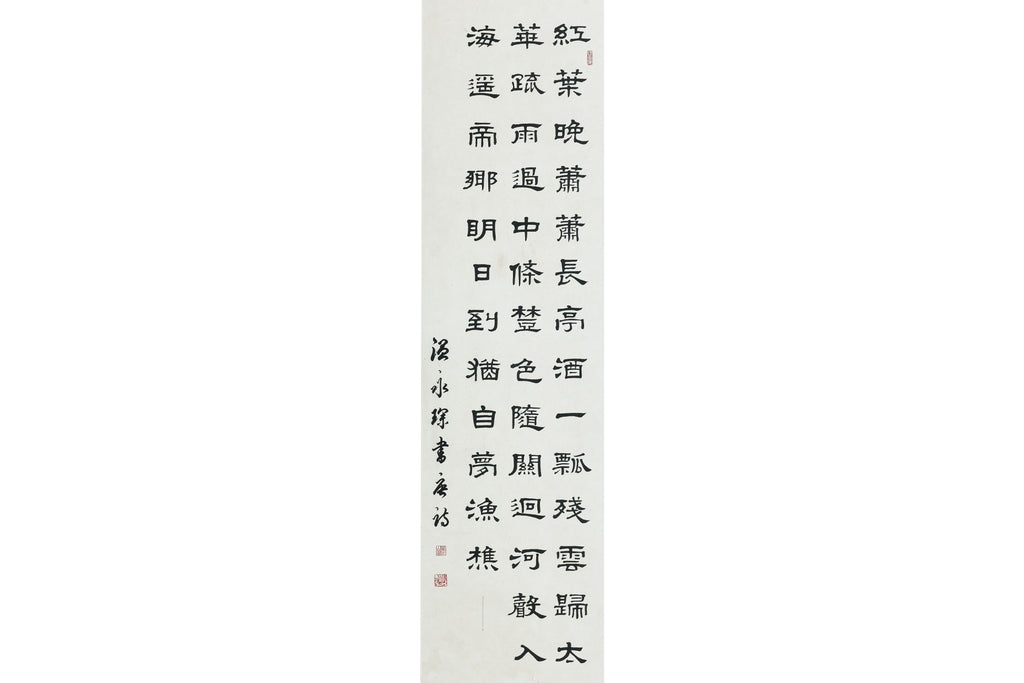 紅葉晚蕭蕭長亭酒一瓢殘雲歸太
華疏雨過中條楚色隨關迥河聲入
海遥帝鄉明日到猶自夢漁樵
温永琛書唐詩